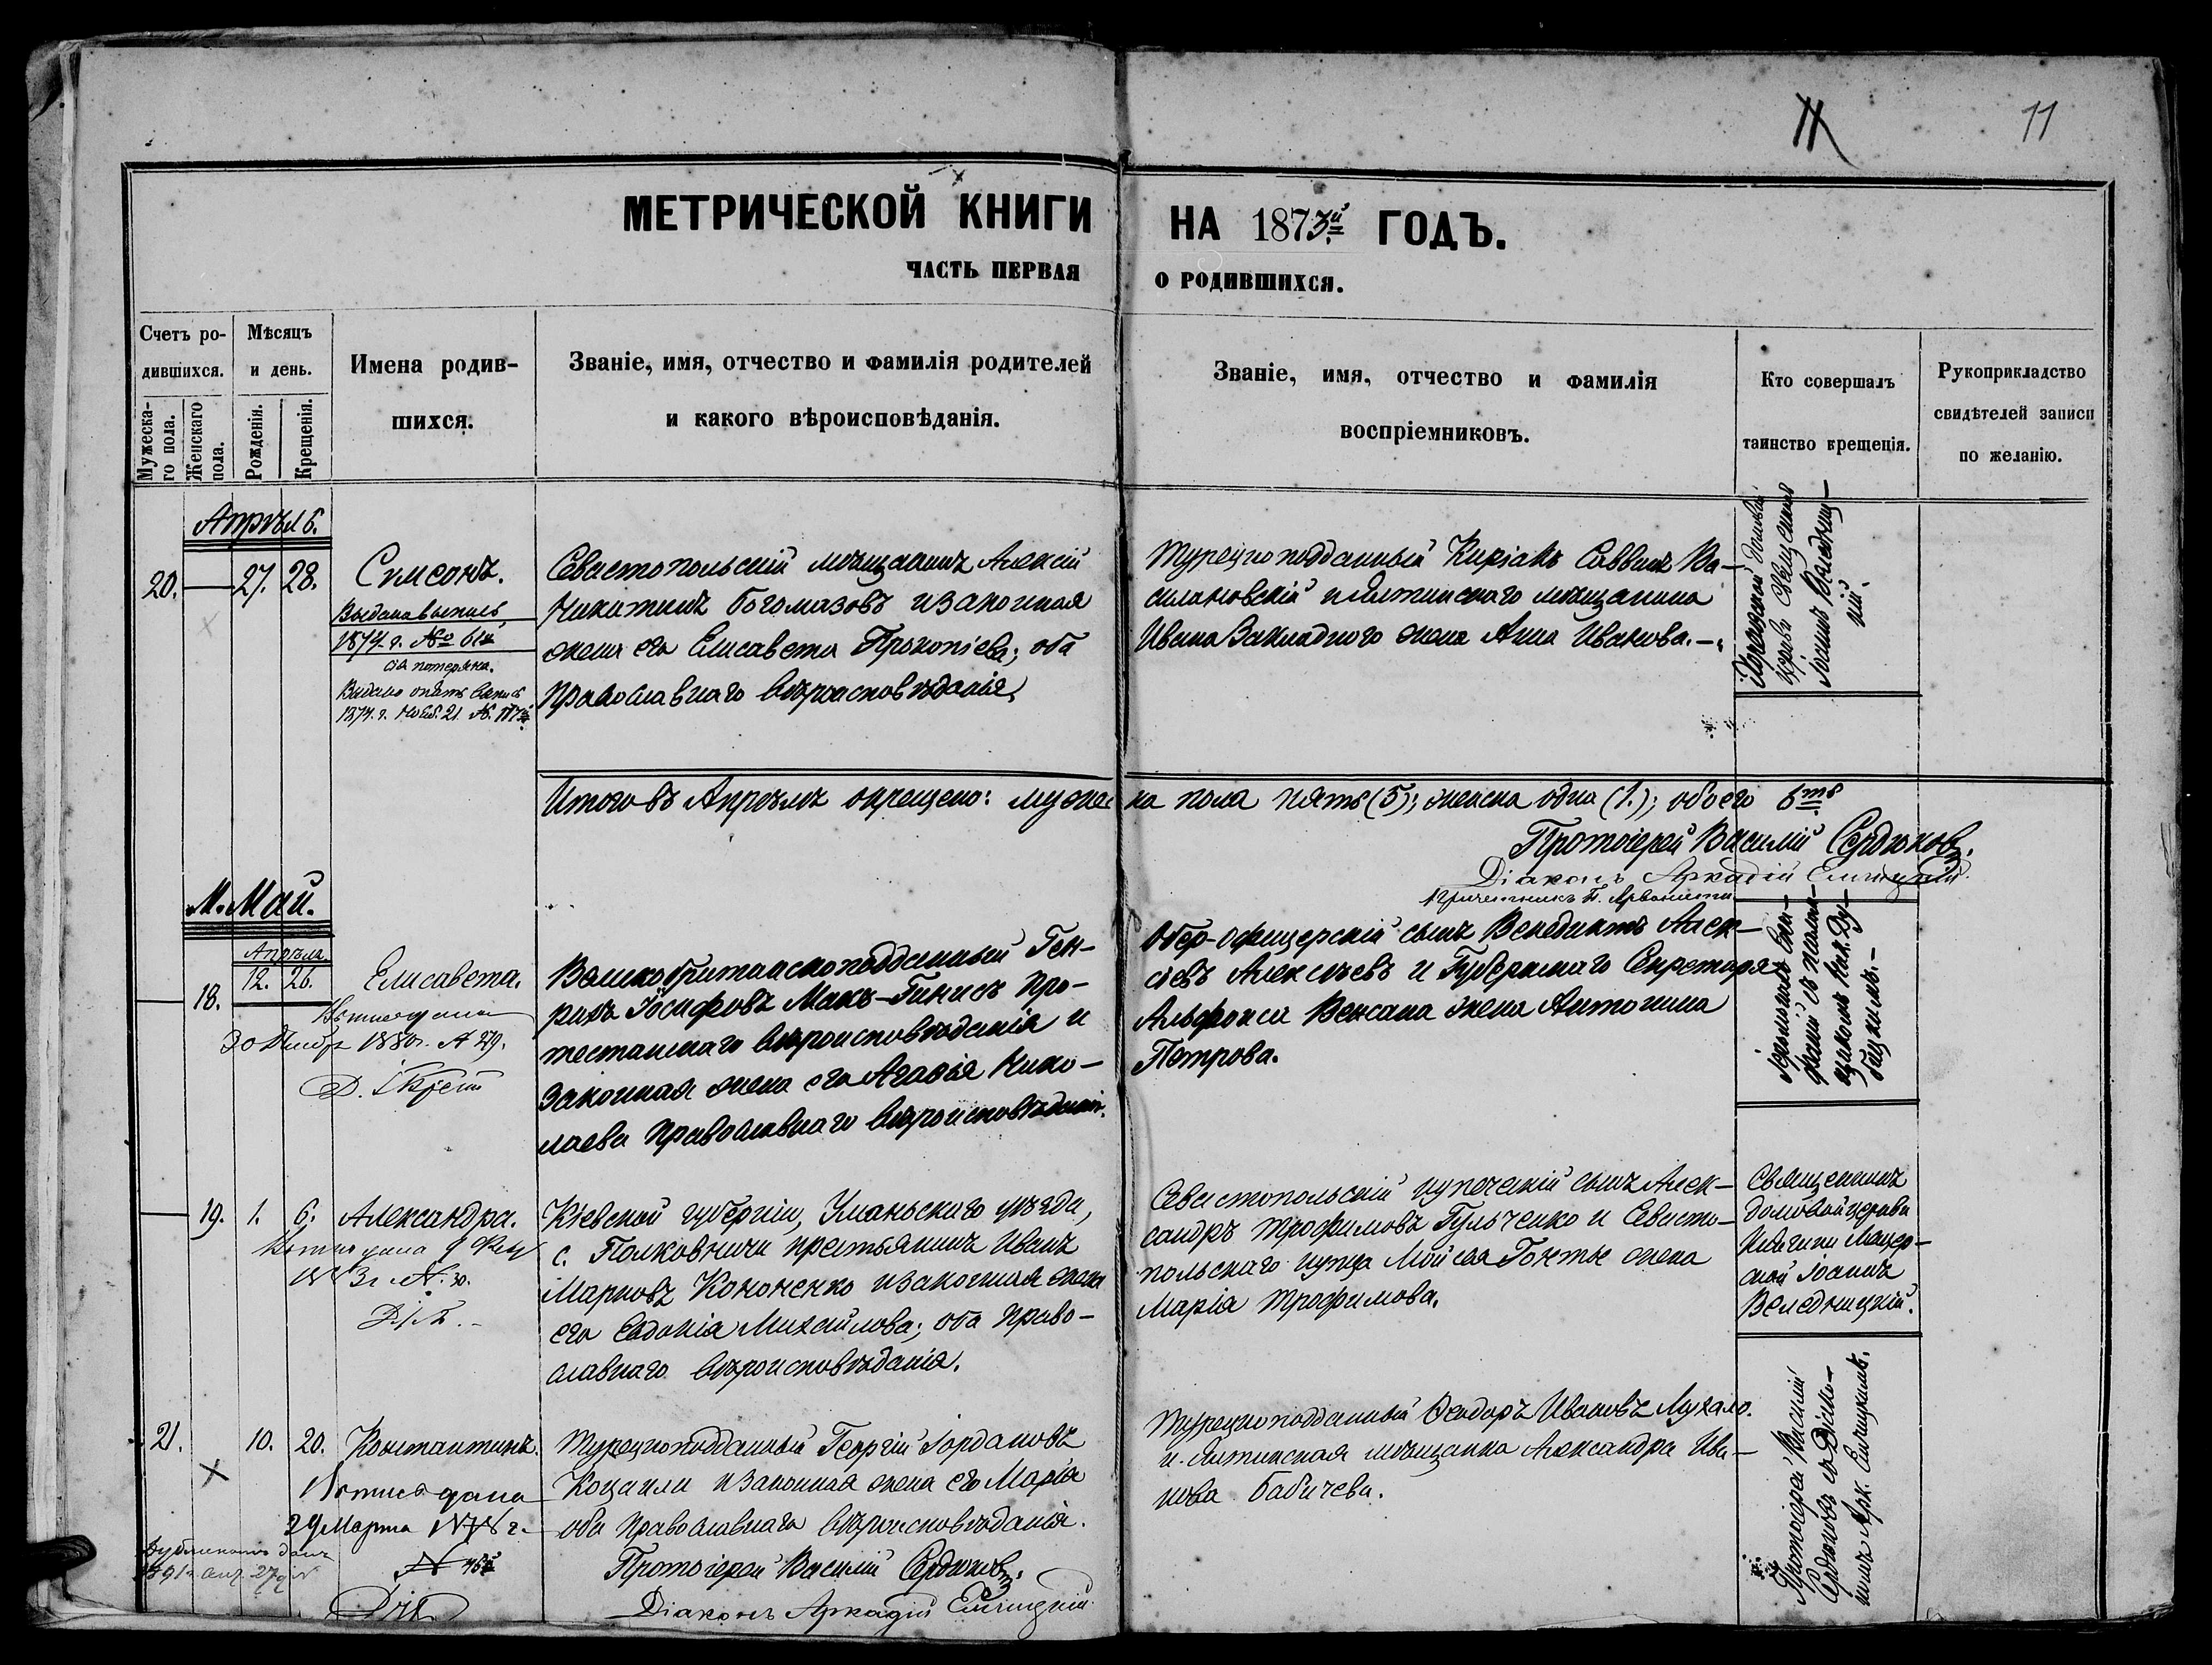 11
МЕТРИЧЕСКОЙ КНИГИ НА 1873й ГОДЪ.
ЧАСТЬ ПЕРВАЯ О РОДИВШИХСЯ.
Счетъ ро-
дившихся.
Мужеска-
го пола.
Женскаго
пола.
Мѣсяцъ
и день.
Рожденія.
Крещенія.
Имена родив-
шихся.
Званіе, имя, отчество и фамилія родителей
и какого вѣроисповѣданія.
Званіе, имя, отчество и фамилія
воспріемниковъ.
Кто совершалъ
таинство крещенія.
Рукоприкладство
свидѣтелей записи
по желанію.
Апрѣль.
20. — 27. 28. Симеонъ.
Выдана выпись,
1874 г. №
сія потеряна.
Выдана опять выпись
1874. г. Нояб. 21. №
Севастопольскій мѣщанинъ Алексій
Никитинъ Богомазовъ и законная
жена его Елисавета Прокопіева; оба
православнаго вѣроисповѣданія.
Турецкоподданный Киріакъ Саввинъ Ва-
силановскій и Ялтинскаго мѣщанина
Ивана Закладного жена Анна Иванова.—
Городской домовой
церкви Священникъ
Іоаннъ Веледниц-
кій.
Итого въ Апрѣлѣ окрещено: мужеска пола пять (5); женска одна (1.); обоего 6ть
Протоіерей Василій Сердюковъ.
Діаконъ Аркадій Елчицкій.
Причетникъ П. Арванити
М. Май.
Апрѣля.
— 18. 12. 26. Елисавета.
Выпись дана
30 1880г. № 279.
Великобританскоподданный Ген-
рихъ Іосифовъ Макъ-Гинисъ Про-
тестанскаго вѣроисповѣданія и
законная жена его Агафія Нико-
лаева православнаго вѣроисповѣданія.
Обер-офицерскій сынъ Венедиктъ Алек-
сіевъ Алексѣевъ и Губернскаго Секретаря
Альфонса Вексана жена Антонина
Петрова.
— 19. 1. 6. Александра.
Выпись дана 9
№ 30.
Кіевской губерніи, Уманьскаго уѣзда,
с. Полковничи крестьянинъ Иванъ
Марковъ Кононенко и законная жена
его Евдокія Михайлова; оба право-
славнаго вѣроисповѣданія.
Севастопольскій купеческій сынъ Алек-
сандръ Трофимовъ Гульченко и Севасто-
польскаго купца Мойсея Гонты жена
Марія Трофимова.
Священникъ
домовой церкви
Іоаннъ
Веледницкій.
21. 10. 20. Константинъ.
Выпись дана
29 Марта
Дубликатъ данъ
1891г. апр. 27
Турецкоподданный Георгій Іордановъ
Коцаили и законная жена его Марія
оба православнаго вѣроисповѣданія.
Турецкоподданный Ѳеодоръ Ивановъ Мухало.
и Ялтинская мѣщанка Александра Ива-
нова Бабичева.
Протоіерей Василій
Сердюковъ съ Діако-
номъ Арк. Елчицкимъ.
Протоіерей Василій Сердюковъ.
Діаконъ Аркадій Елчицкій